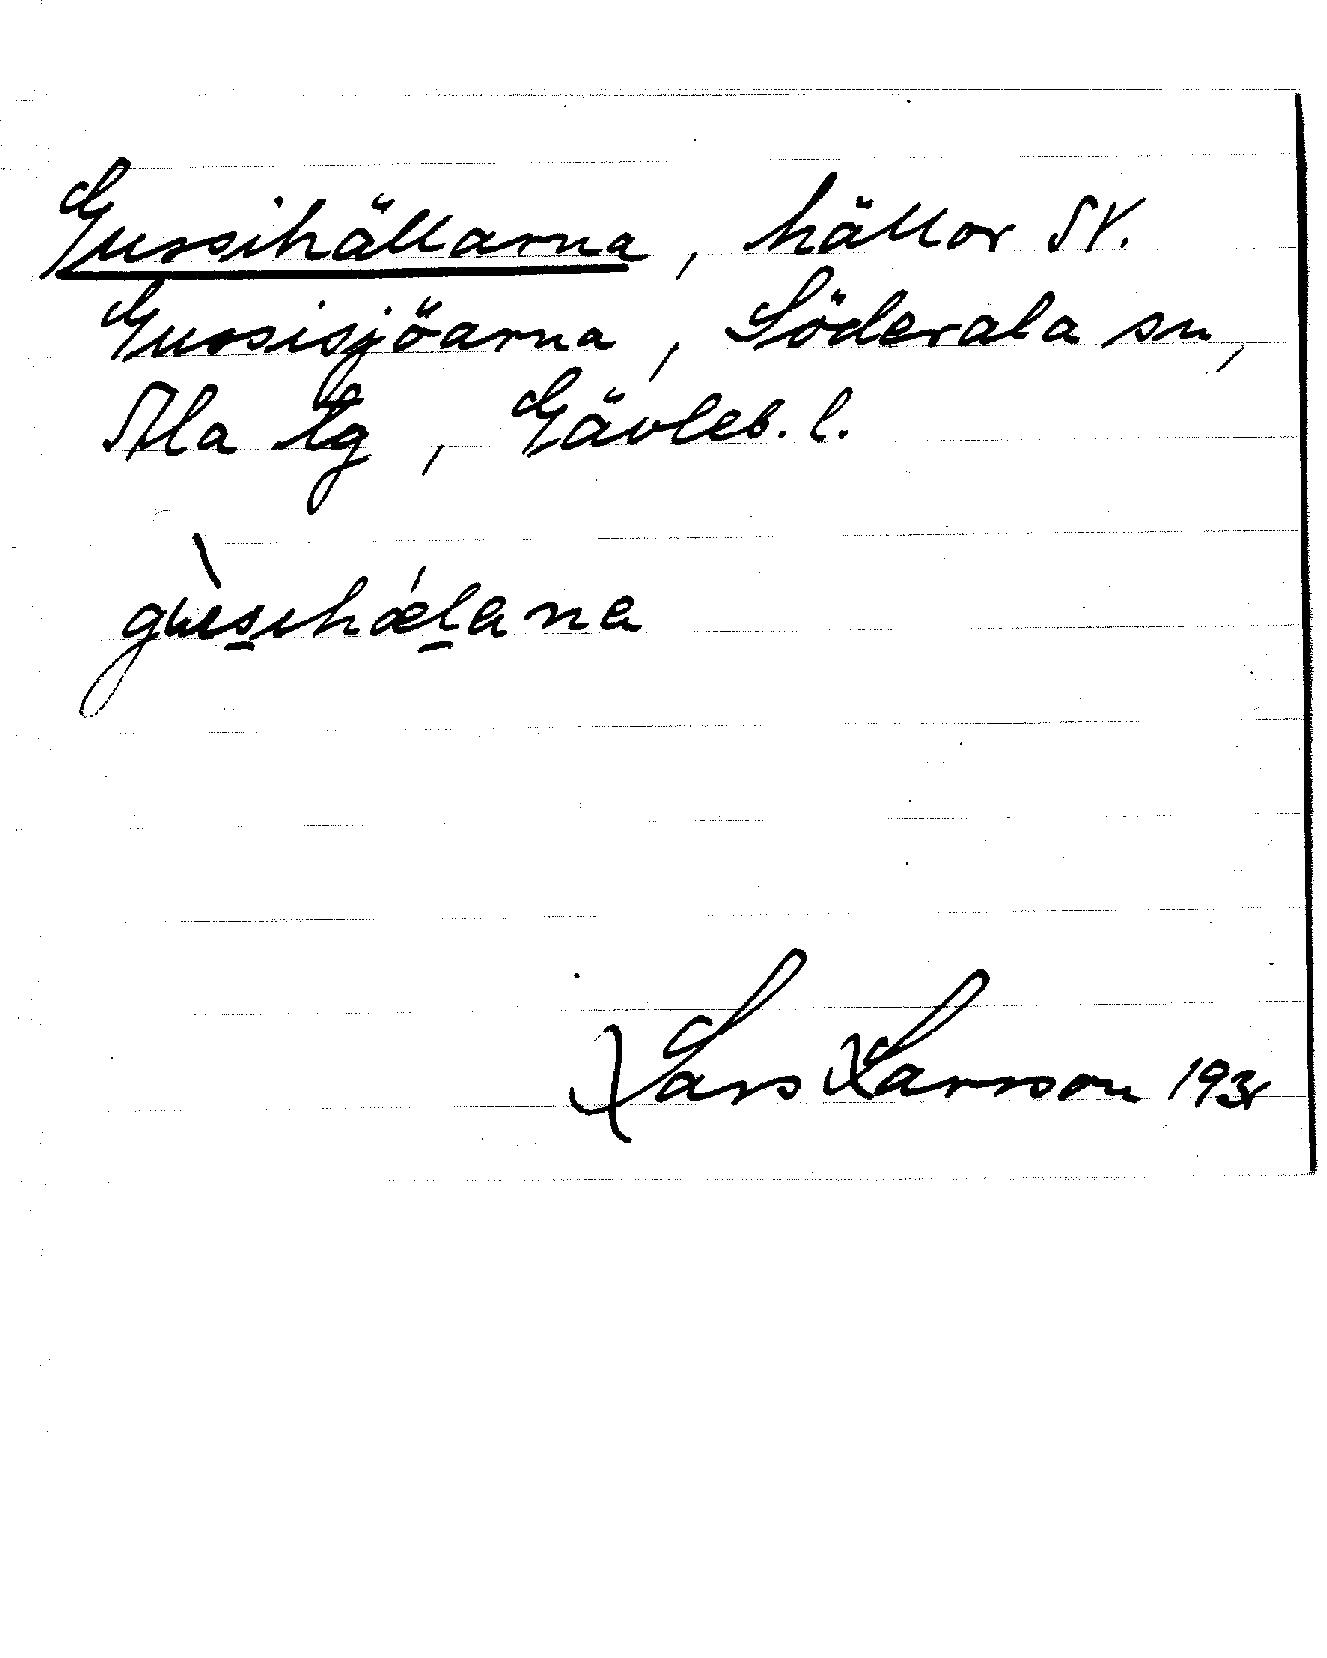 Gussihällarna, hällor SV.
Gussisjöarna, Söderala sn,
Ala tg, Gävleb. l.
gùsihǽlana
Lars Larsson